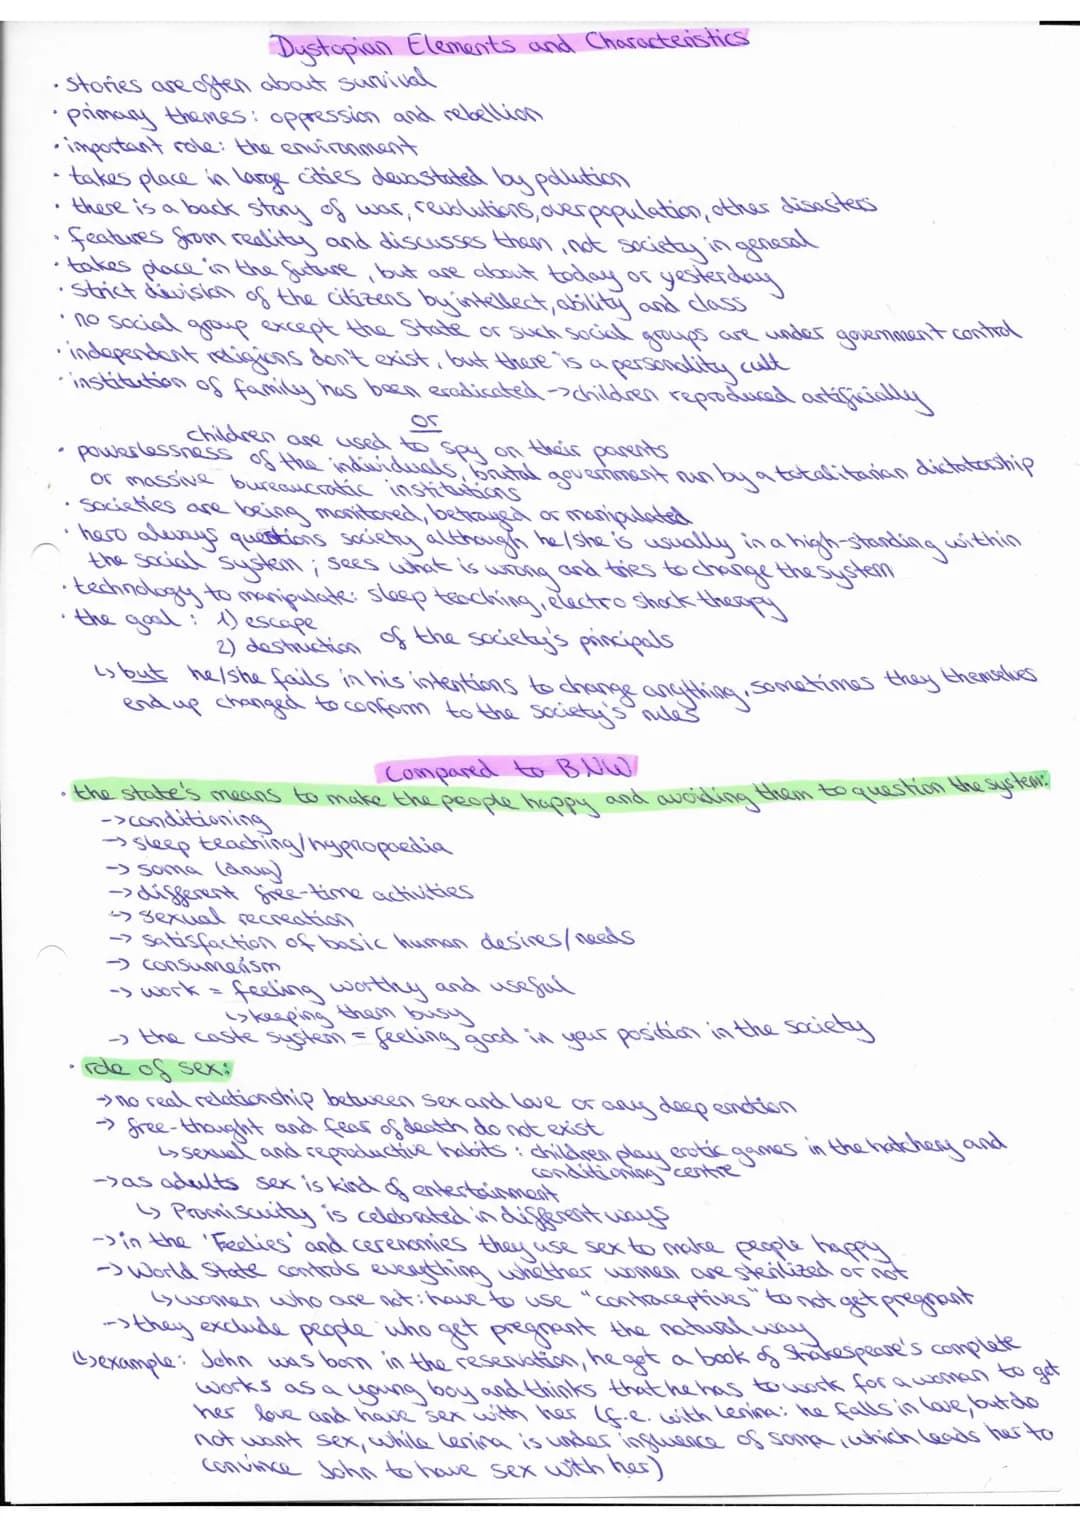 Dystopian Elements and Characteristics
· stories are often about survival
· primary themes: oppression and rebellion
· important role: the environment
· takes place in large cities devastated by pollution
· there is a back story of war, revolutions, overpopulation, other disasters
· features from reality and discusses them, not society in general
· takes place in the future, but are about today or yesterday
· strict division of the citizens by intellect, ability and class
· no social group except the State or such social groups are under government control
· independent religions don't exist, but there is a personality cult
· institution of family has been eradicated -> children reproduced artificially
or
children are used to spy on their parents
· powerlessness of the individuals, brutal government run by a totalitarian dictatorship
or massive bureaucratic institutions
· societies are being monitored, betrayed or manipulated
· hero always questions society although he/she is usually in a high-standing within
the social system; sees what is wrong and tries to change the system
· technology to manipulate: sleep teaching, electro shock therapy
· the goal: 1) escape
2) destruction of the society's principals
↳ but he/she fails in his intentions to change anything, sometimes they themselves
end up changed to conform to the society's rules
Compared to BNW
· the state's means to make the people happy and avoiding them to question the system:
-> conditioning
-> sleep teaching/hypnopaedia
-> soma (drug)
-> different free-time activities
-> sexual recreation
-> satisfaction of basic human desires/needs
-> consumerism
-> work = feeling worthy and useful
↳ keeping them busy
-> the caste system = feeling good in your position in the society
· role of sex:
-> no real relationship between sex and love or any deep emotion
-> free-thought and fear of death do not exist
↳ sexual and reproductive habits: children play erotic games in the hatchery and
conditioning centre
-> as adults sex is kind of entertainment
↳ Promiscuity is celebrated in different ways
-> in the 'Feelies' and ceremonies they use sex to make people happy
-> World State controls everything whether women are sterilized or not
↳ women who are not: have to use "contraceptives" to not get pregnant
-> they exclude people who get pregnant the natural way
↳ example: John was born in the reservation, he got a book of Shakespeare's complete
works as a young boy and thinks that he has to work for a woman to get
her love and have sex with her (f.e. with Lenina: he falls in love, but do
not want sex, while Lenina is under influence of soma, which leads her to
convince John to have sex with her)